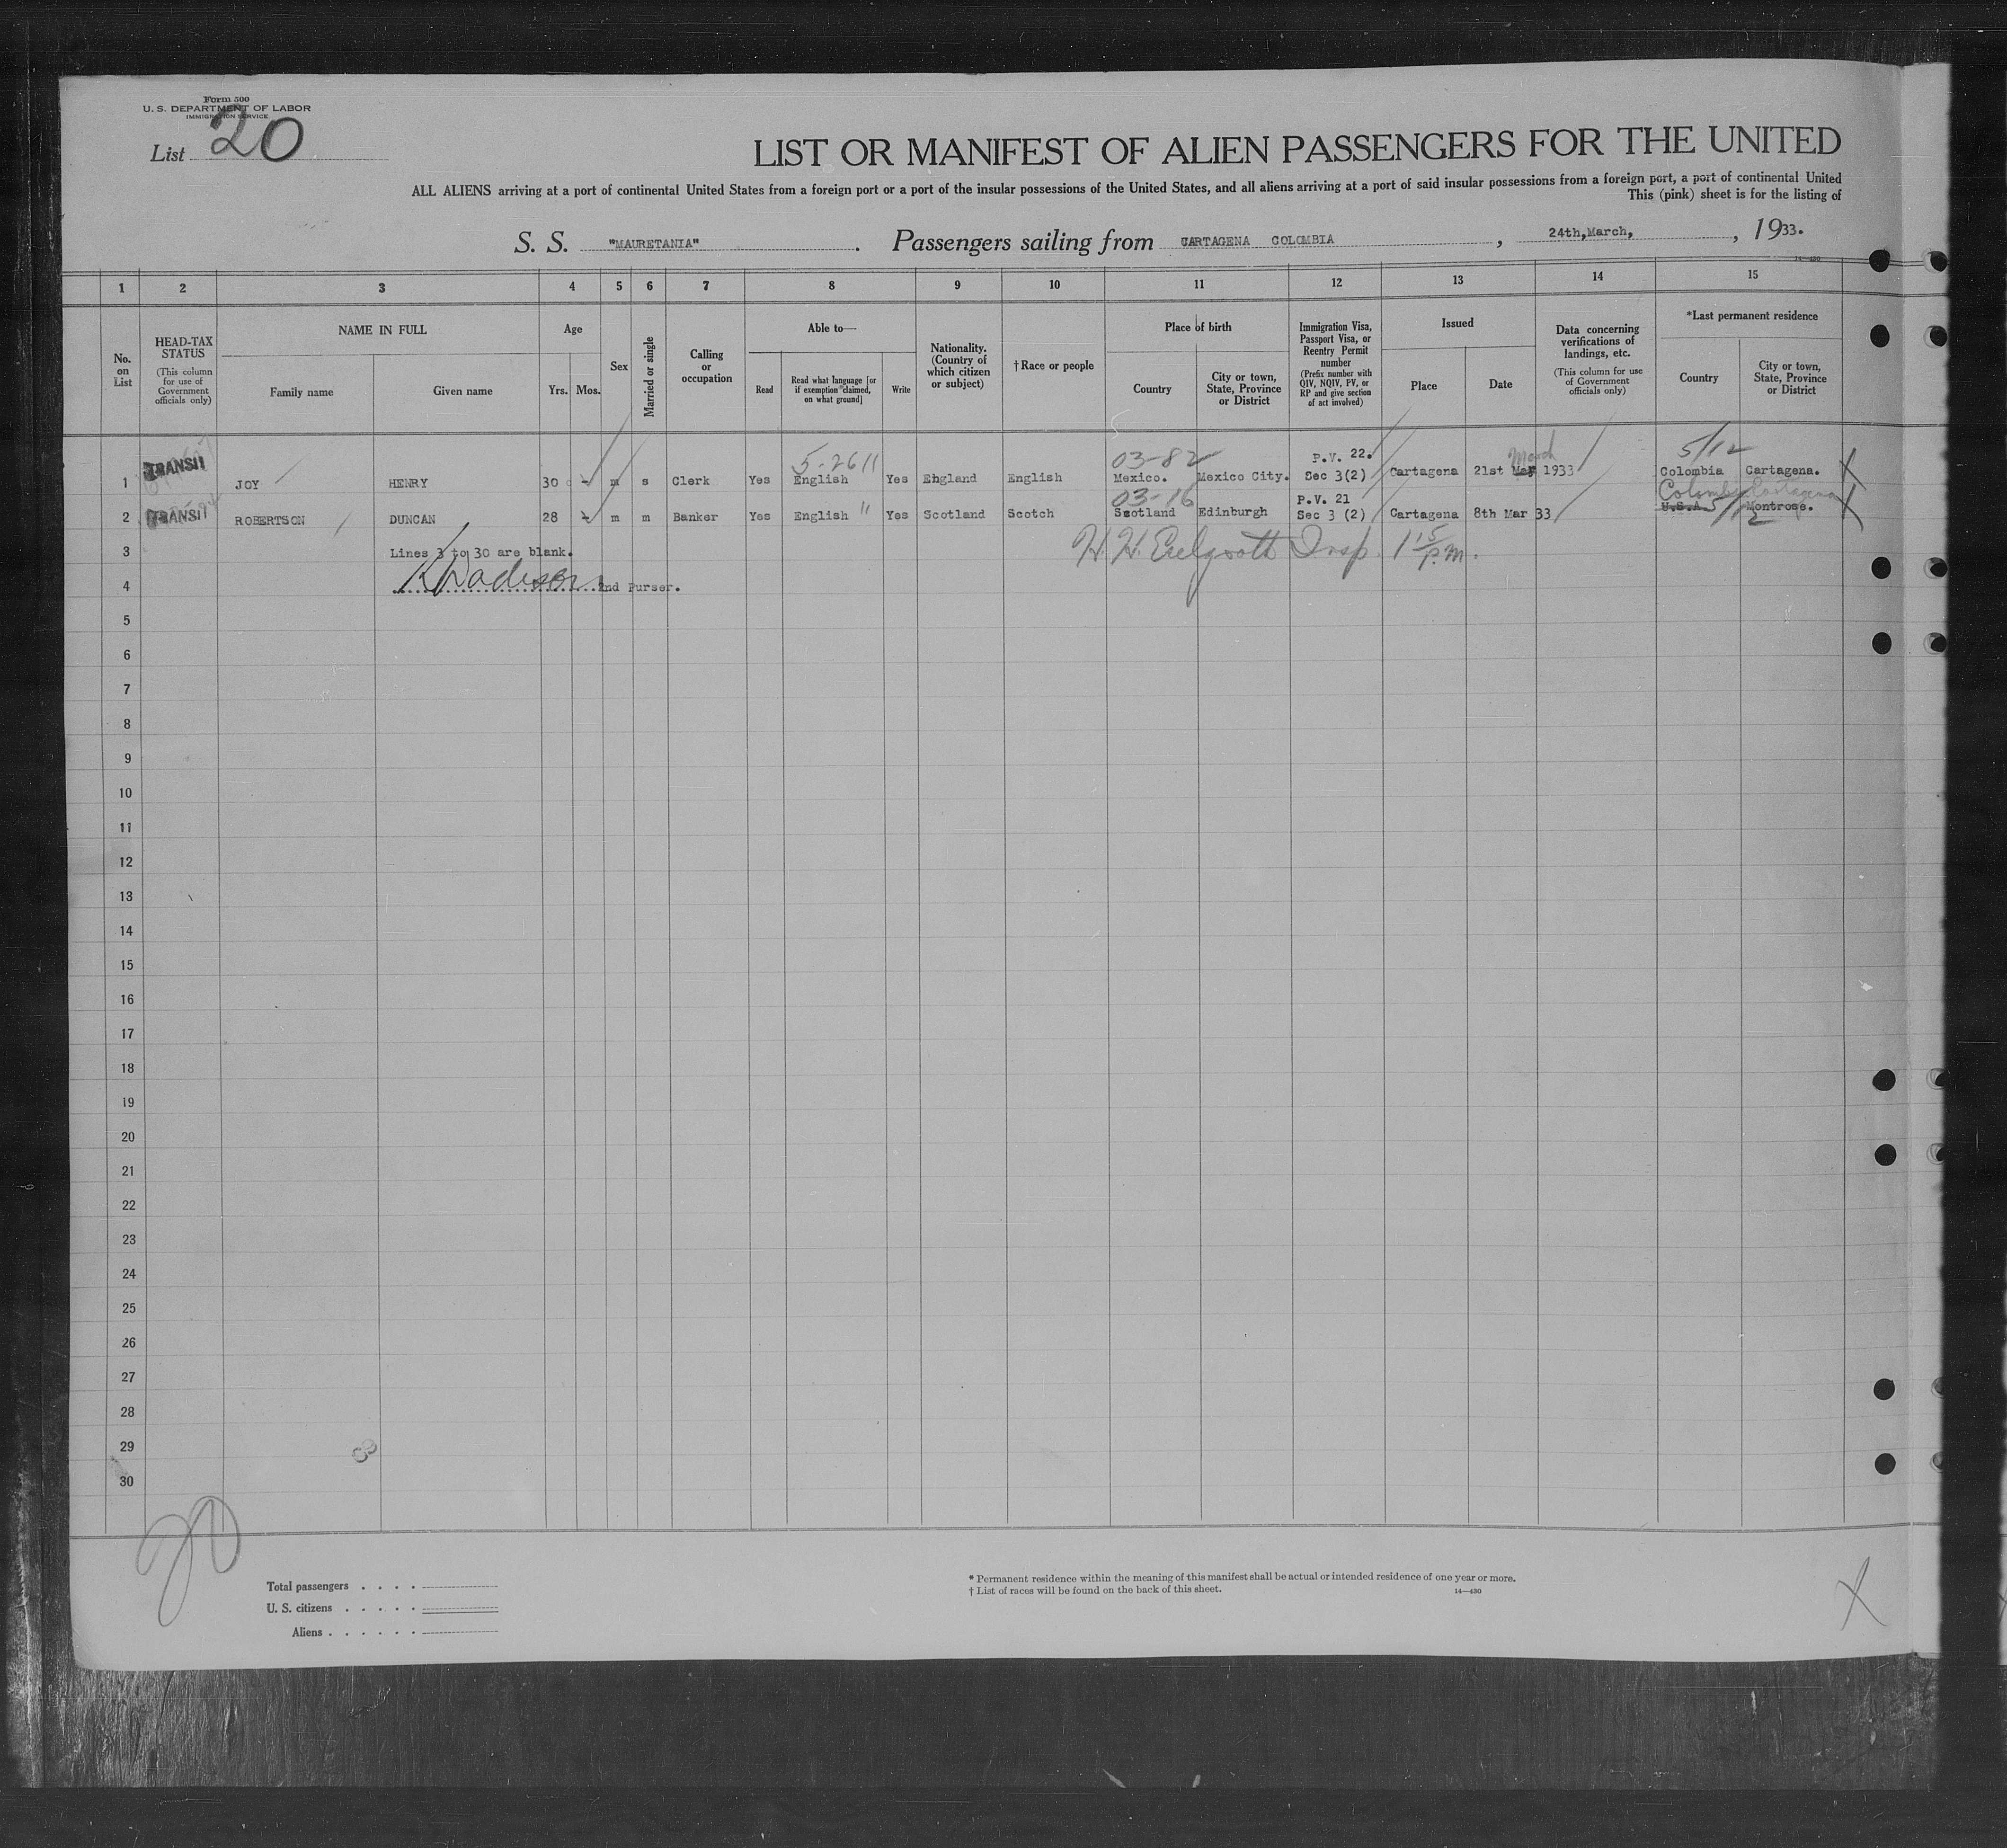 Form 500
U. S. DEPARTMENT OF LABOR
IMMIGRATION SERVICE
List 20
LIST OR MANIFEST OF ALIEN PASSENGERS FOR THE UNITED
ALL ALIENS arriving at a port of continental United States from a foreign port or a port of the insular possessions of the United States, and all aliens arriving at a port of said insular possessions from a foreign port, a port of continental United
This (pink) sheet is for the listing of
S. S. "MAURETANIA". Passengers sailing from CARTAGENA COLOMBIA, 24th,March, , 1933.
14—430
1 2 3 4 5 6 7 8 9 10 11 12 13 14 15
No. on List
HEAD-TAX STATUS
(This column for use of Government officials only)
NAME IN FULL
Family name
Given name
Age
Yrs. Mos.
Sex
Married or single
Calling or occupation
Able to—
Read
Read what language [or if exemption claimed, on what ground]
Write
Nationality. (Country of which citizen or subject)
† Race or people
Place of birth
Country
City or town, State, Province or District
Immigration Visa, Passport Visa, or Reentry Permit number
(Prefix number with QIV, NQIV, PV, or RP and give section of act involved)
Issued
Place
Date
Data concerning verifications of landings, etc.
(This column for use of Government officials only)
*Last permanent residence
Country
City or town, State, Province or District
5-26 11 03-82 P.V. 22. March 5/12
1 TRANSIT JOY HENRY 30 - m s Clerk Yes English Yes England English Mexico. Mexico City. Sec 3(2) Cartagena 21st Mar 1933 Colombia Cartagena.
03-16 P.V. 21 Colombia Cartagena
2 TRANSIT ROBERTSON DUNCAN 28 - m m Banker Yes English " Yes Scotland Scotch Scotland Edinburgh Sec 3 (2) Cartagena 8th Mar 33 U.S.A 5/12 Montrose.
3 Lines 3 to 30 are blank. H. H. Insp. 1 15 p.m.
4 2nd Purser.
5
6
7
8
9
10
11
12
13
14
15
16
17
18
19
20
21
22
23
24
25
26
27
28
29
30
20
Total passengers . . . .
U. S. citizens . . . . .
Aliens . . . . . .
* Permanent residence within the meaning of this manifest shall be actual or intended residence of one year or more.
† List of races will be found on the back of this sheet. 14—430
X